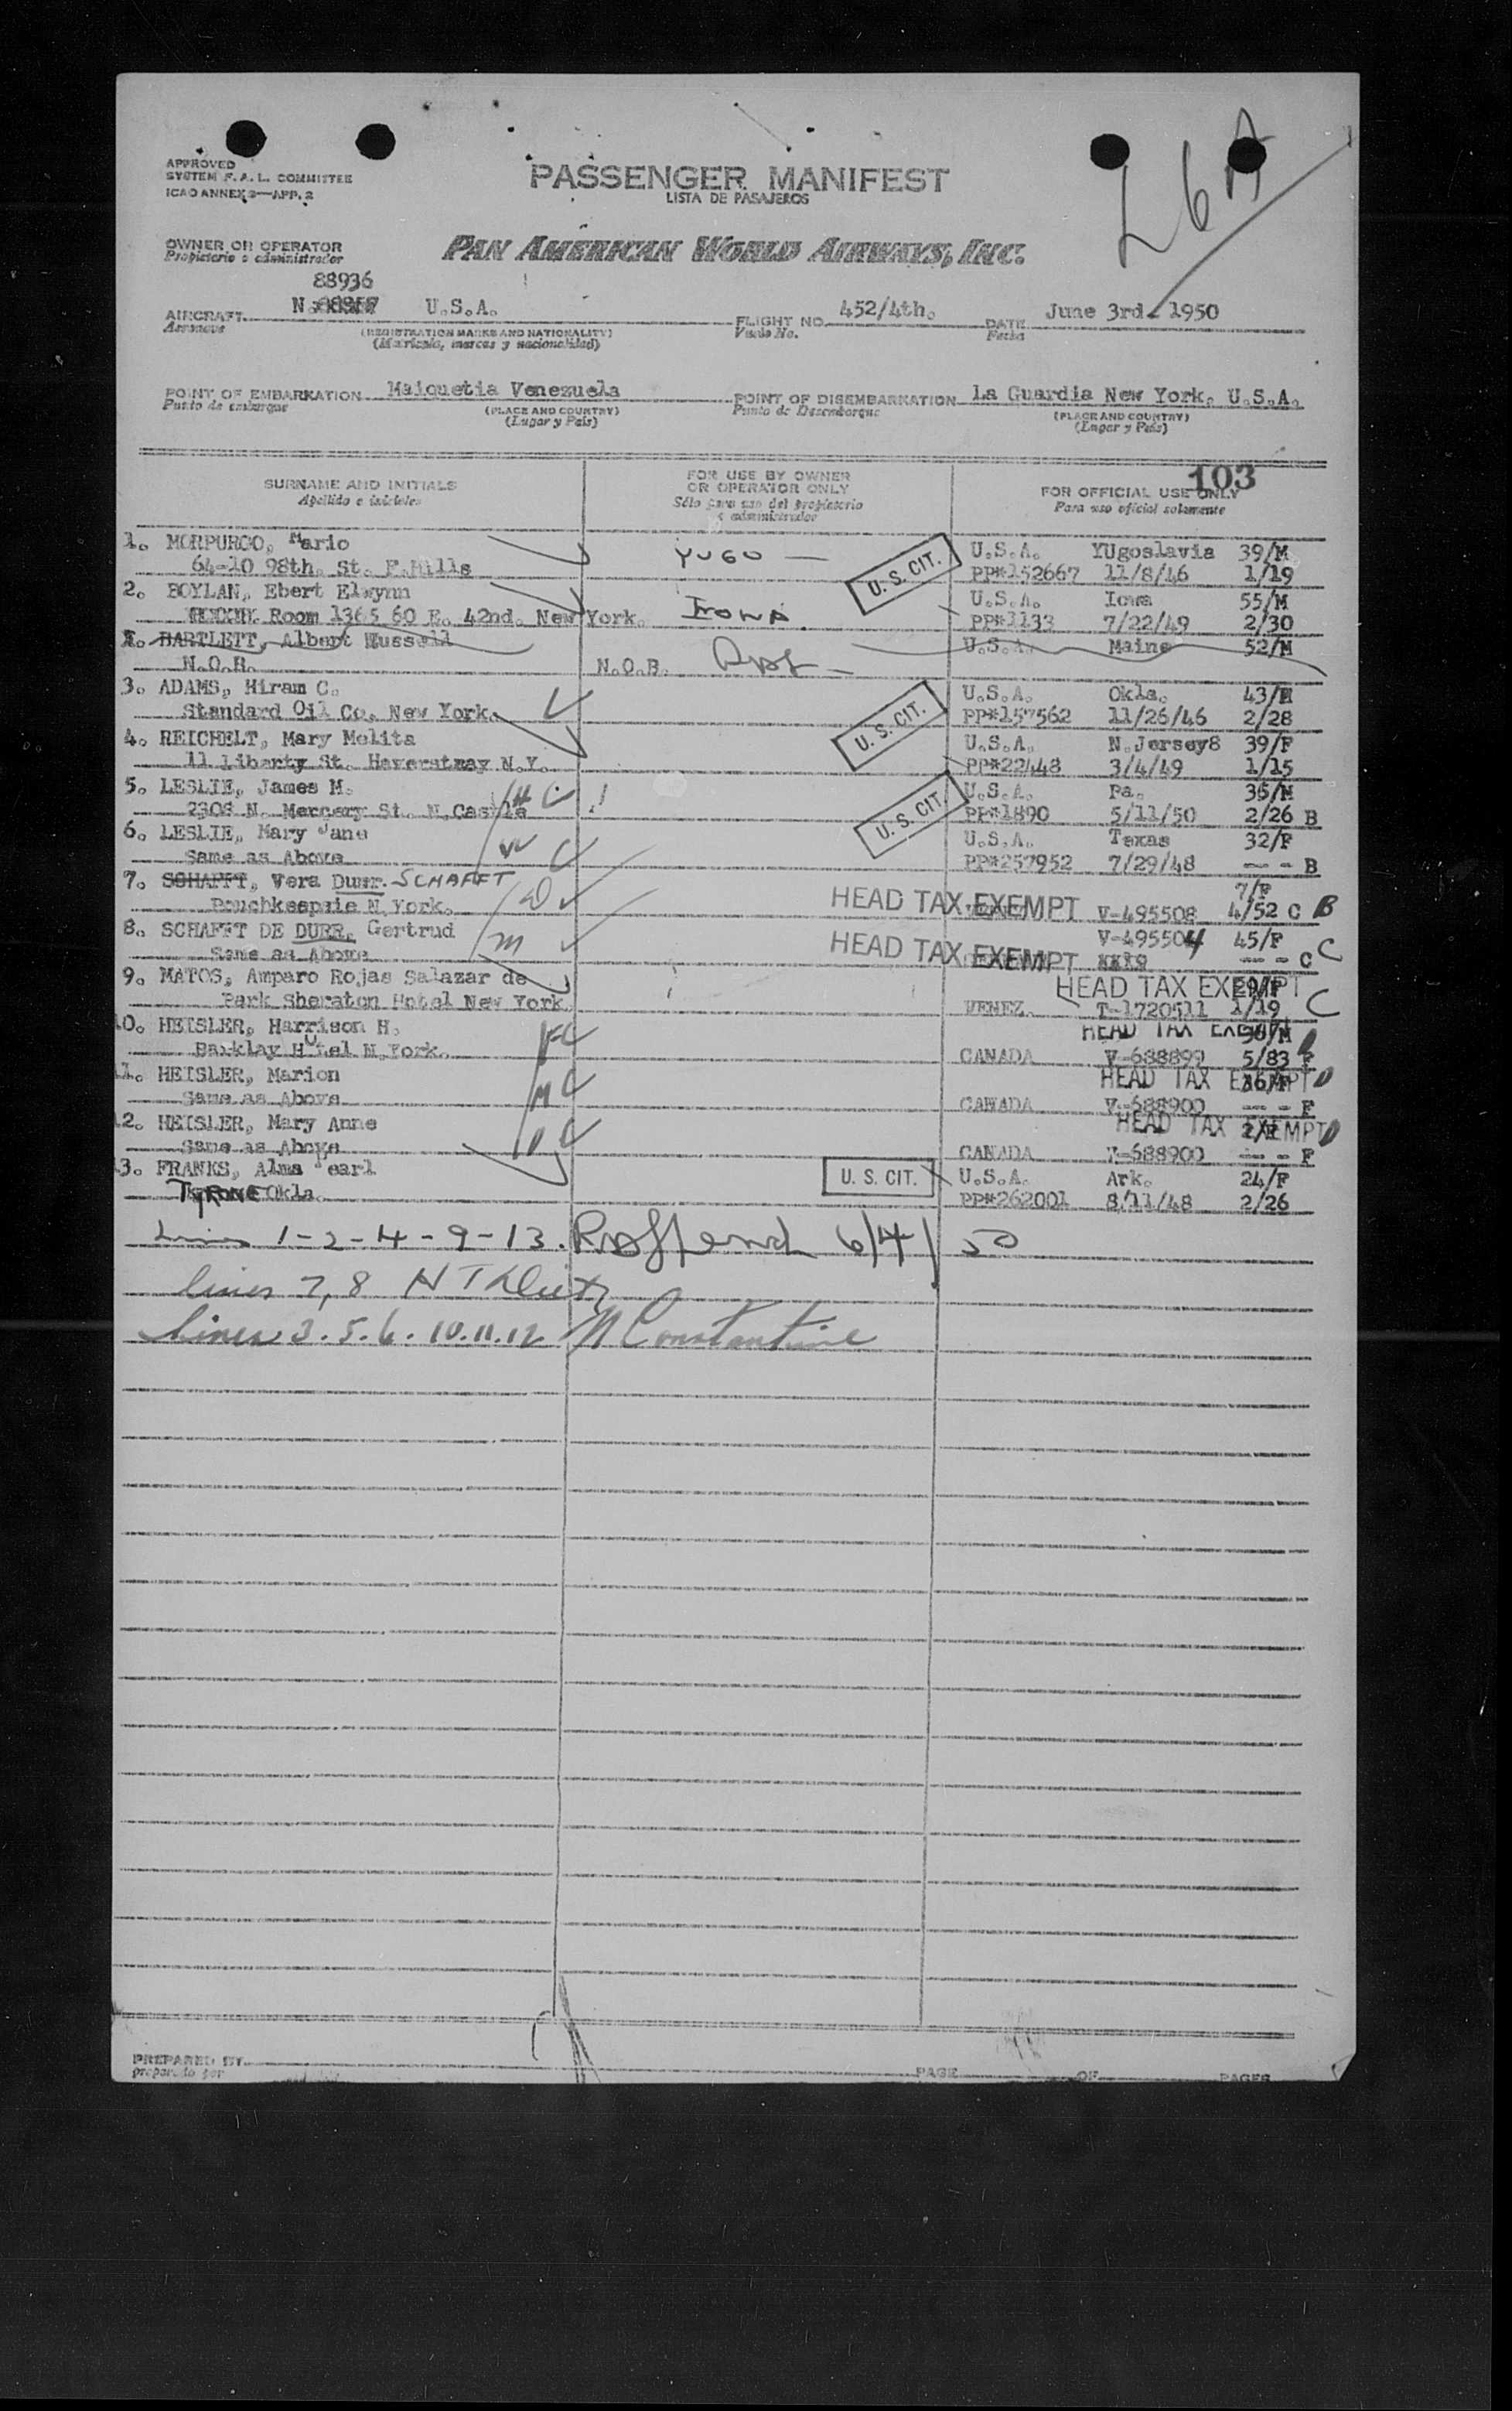 APPROVED
SYSTEM F.A.L. COMMITTEE
ICAO ANNEX 9—APP. 2
PASSENGER MANIFEST
LISTA DE PASAJEROS
OWNER OR OPERATOR
Propietario o administrador
PAN AMERICAN WORLD AIRWAYS, INC.
26A
88936
AIRCRAFT N. U.S.A. FLIGHT NO. 452/4th. DATE June 3rd. 1950
Aeronave (REGISTRATION MARKS AND NATIONALITY) Vuelo No. Fecha
(Matrícula, marcas y nacionalidad)
POINT OF EMBARKATION Maiquetia Venezuela POINT OF DISEMBARKATION La Guardia New York, U.S.A.
Punto de embarque (PLACE AND COUNTRY) Punto de Desembarque (PLACE AND COUNTRY)
(Lugar y País) (Lugar y País)
103
SURNAME AND INITIALS FOR USE BY OWNER OR OPERATOR ONLY FOR OFFICIAL USE ONLY
Apellido e iniciales Sólo para uso del propietario o administrador Para uso oficial solamente
1. MORPURGO, Mario YUGO U.S.A. YUgoslavia 39/M
64-10 98th. St. F.Hills U.S. CIT. PP#152667 11/8/46 1/19
2. BOYLAN, Ebert Elwynn U.S.A. Iowa 55/M
Room 1365 60 E. 42nd. New York. IOWA PP#1133 7/22/49 2/30
BARTLETT, Albert Russell U.S.A. Maine 52/M
N.O.B. N.O.B.
3. ADAMS, Hiram C. U.S.A. Okla. 43/M
Standard Oil Co. New York. U.S. CIT. PP#157562 11/26/46 2/28
4. REICHELT, Mary Melita U.S.A. N.Jersey8 39/F
11 Liberty St. Haverstray N.Y. PP#22448 3/4/49 1/15
5. LESLIE, James M. H U.S.A. Pa. 35/M
2308 N. Mercery St. N.Castle U.S. CIT. PP#1890 5/11/50 2/26 B
6. LESLIE, Mary Jane W U.S.A. Texas 32/F
Same as Above PP#257952 7/29/48 -- - B
7. SCHAFFT, Vera Durr. SCHAFFT D 7/F
Pouchkeepsie N.York. HEAD TAX EXEMPT V-495508 4/52 C B
8. SCHAFFT DE DURR, Gertrud M V-495504 45/F
Same as Above HEAD TAX EXEMPT -- - C C
9. MATOS, Amparo Rojas Salazar de HEAD TAX EXEMPT
Park Sheraton Hotel New York. VENEZ. T-1720511 1/19 C
10. HEISLER, Harrison H. HEAD TAX EXEMPT
Barklay Hotel N.York. CANADA V-688899 5/83 F
11. HEISLER, Marion HEAD TAX EXEMPT
Same as Above CANADA V-688900 -- - F
12. HEISLER, Mary Anne HEAD TAX EXEMPT
Same as Above CANADA V-688900 -- - F
13. FRANKS, Alma Pearl U.S. CIT. U.S.A. Ark. 24/F
TYRONE Okla. PP#262001 8/11/48 2/26
Lines 1-2-4-9-13. 6/4/50
lines 7, 8
Lines 3.5.6.10.11.12 N Constantine
PREPARED BY PAGE OF PAGES
preparado por